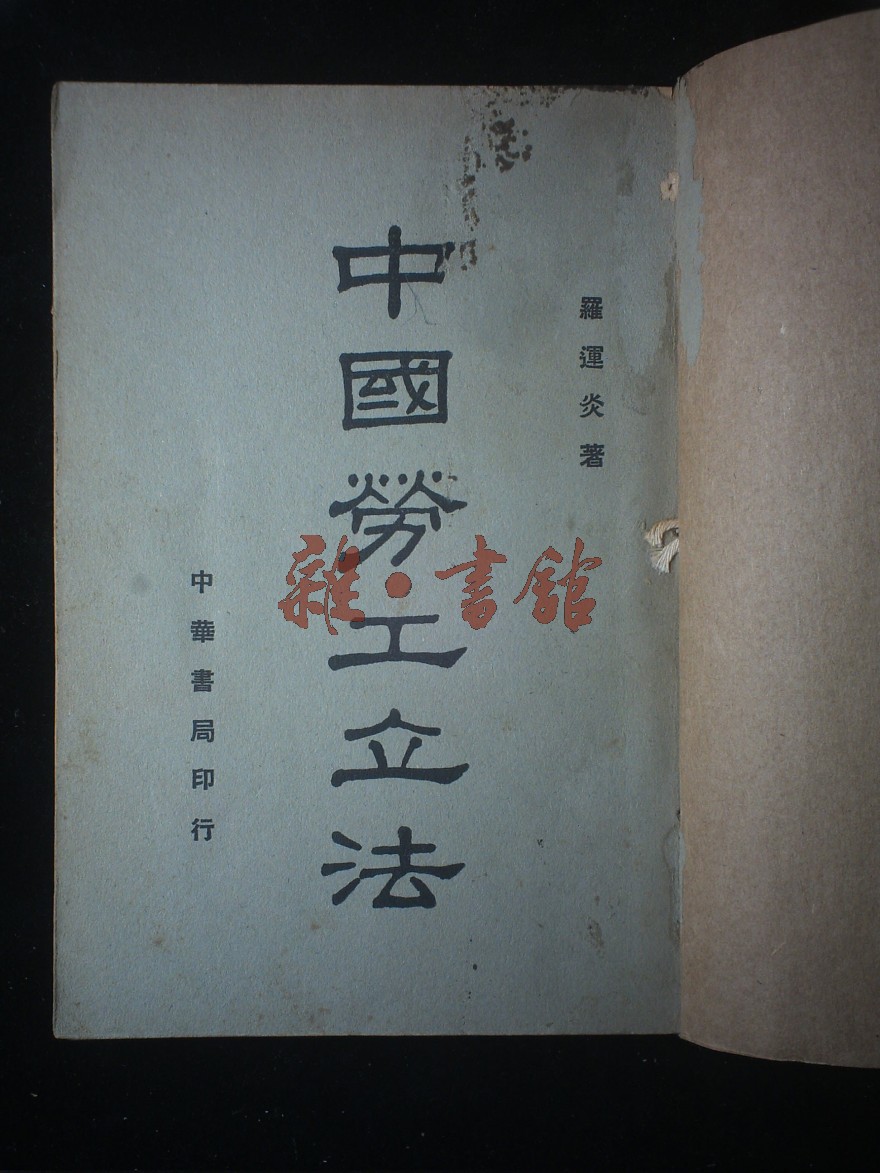 羅運炎著
中國勞工立法
中華書局印行
雜·書館